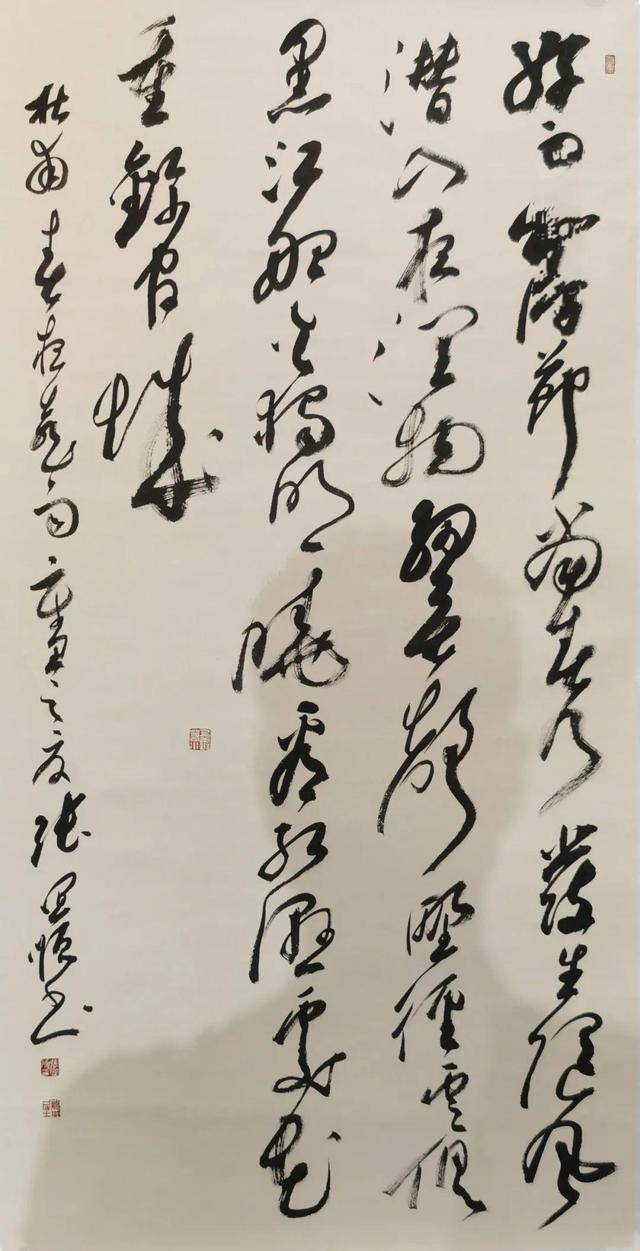 好雨知時節當春乃發生隨風
潛入夜潤物細無聲野徑雲俱
黑江船火獨明曉看紅濕處花
重錦官城
杜甫春夜喜雨之夏張書